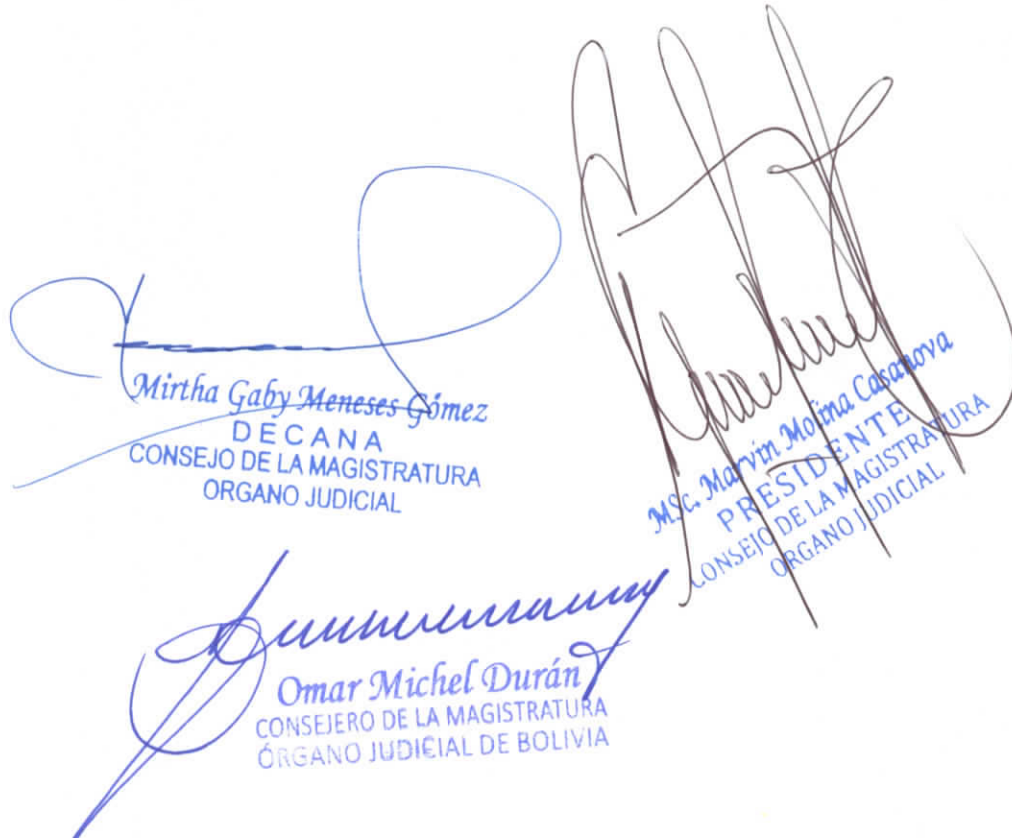 Mirtha Gaby Meneses Gómez
DECANA
CONSEJO DE LA MAGISTRATURA
ORGANO JUDICIAL
MSc. Marvin Molina Casanova
PRESIDENTE
CONSEJO DE LA MAGISTRATURA
ORGANO JUDICIAL
Omar Michel Durán
CONSEJERO DE LA MAGISTRATURA
ÓRGANO JUDICIAL DE BOLIVIA